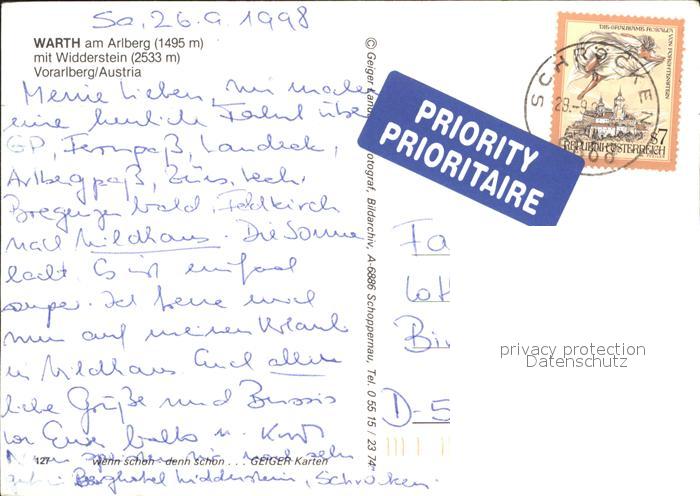 Sa, 26.9.1998
WARTH am Arlberg (1495 m)
mit Widderstein (2533 m)
Vorarlberg/Austria
Meine Lieben, wir machen
eine herrliche Fahrt über
GP, Fernpaß, Landeck,
Arlbergpaß, Zürs, Lech,
Bregenzer Wald, Feldkirch
nach Wildhaus. Die Sonne
lacht. Es ist einfach
super. Ich freue mich
nun auf meinen Urlaub
in Wildhaus. Euch allen
liebe Grüße und Bussis
von Eurer u. Kurt
127 Wenn schon - denn schon . . . GEIGER Karten
Berghotel Widderstein, Schröcken.
fotograf, Bildarchiv, A-6886 Schoppernau, Tel. 0 55 15 / 23 74
PRIORITY
PRIORITAIRE
SCHRÖCKEN
S7
REPUBLIK ÖSTERREICH
Fa
Bi
D-5
privacy protection
Datenschutz